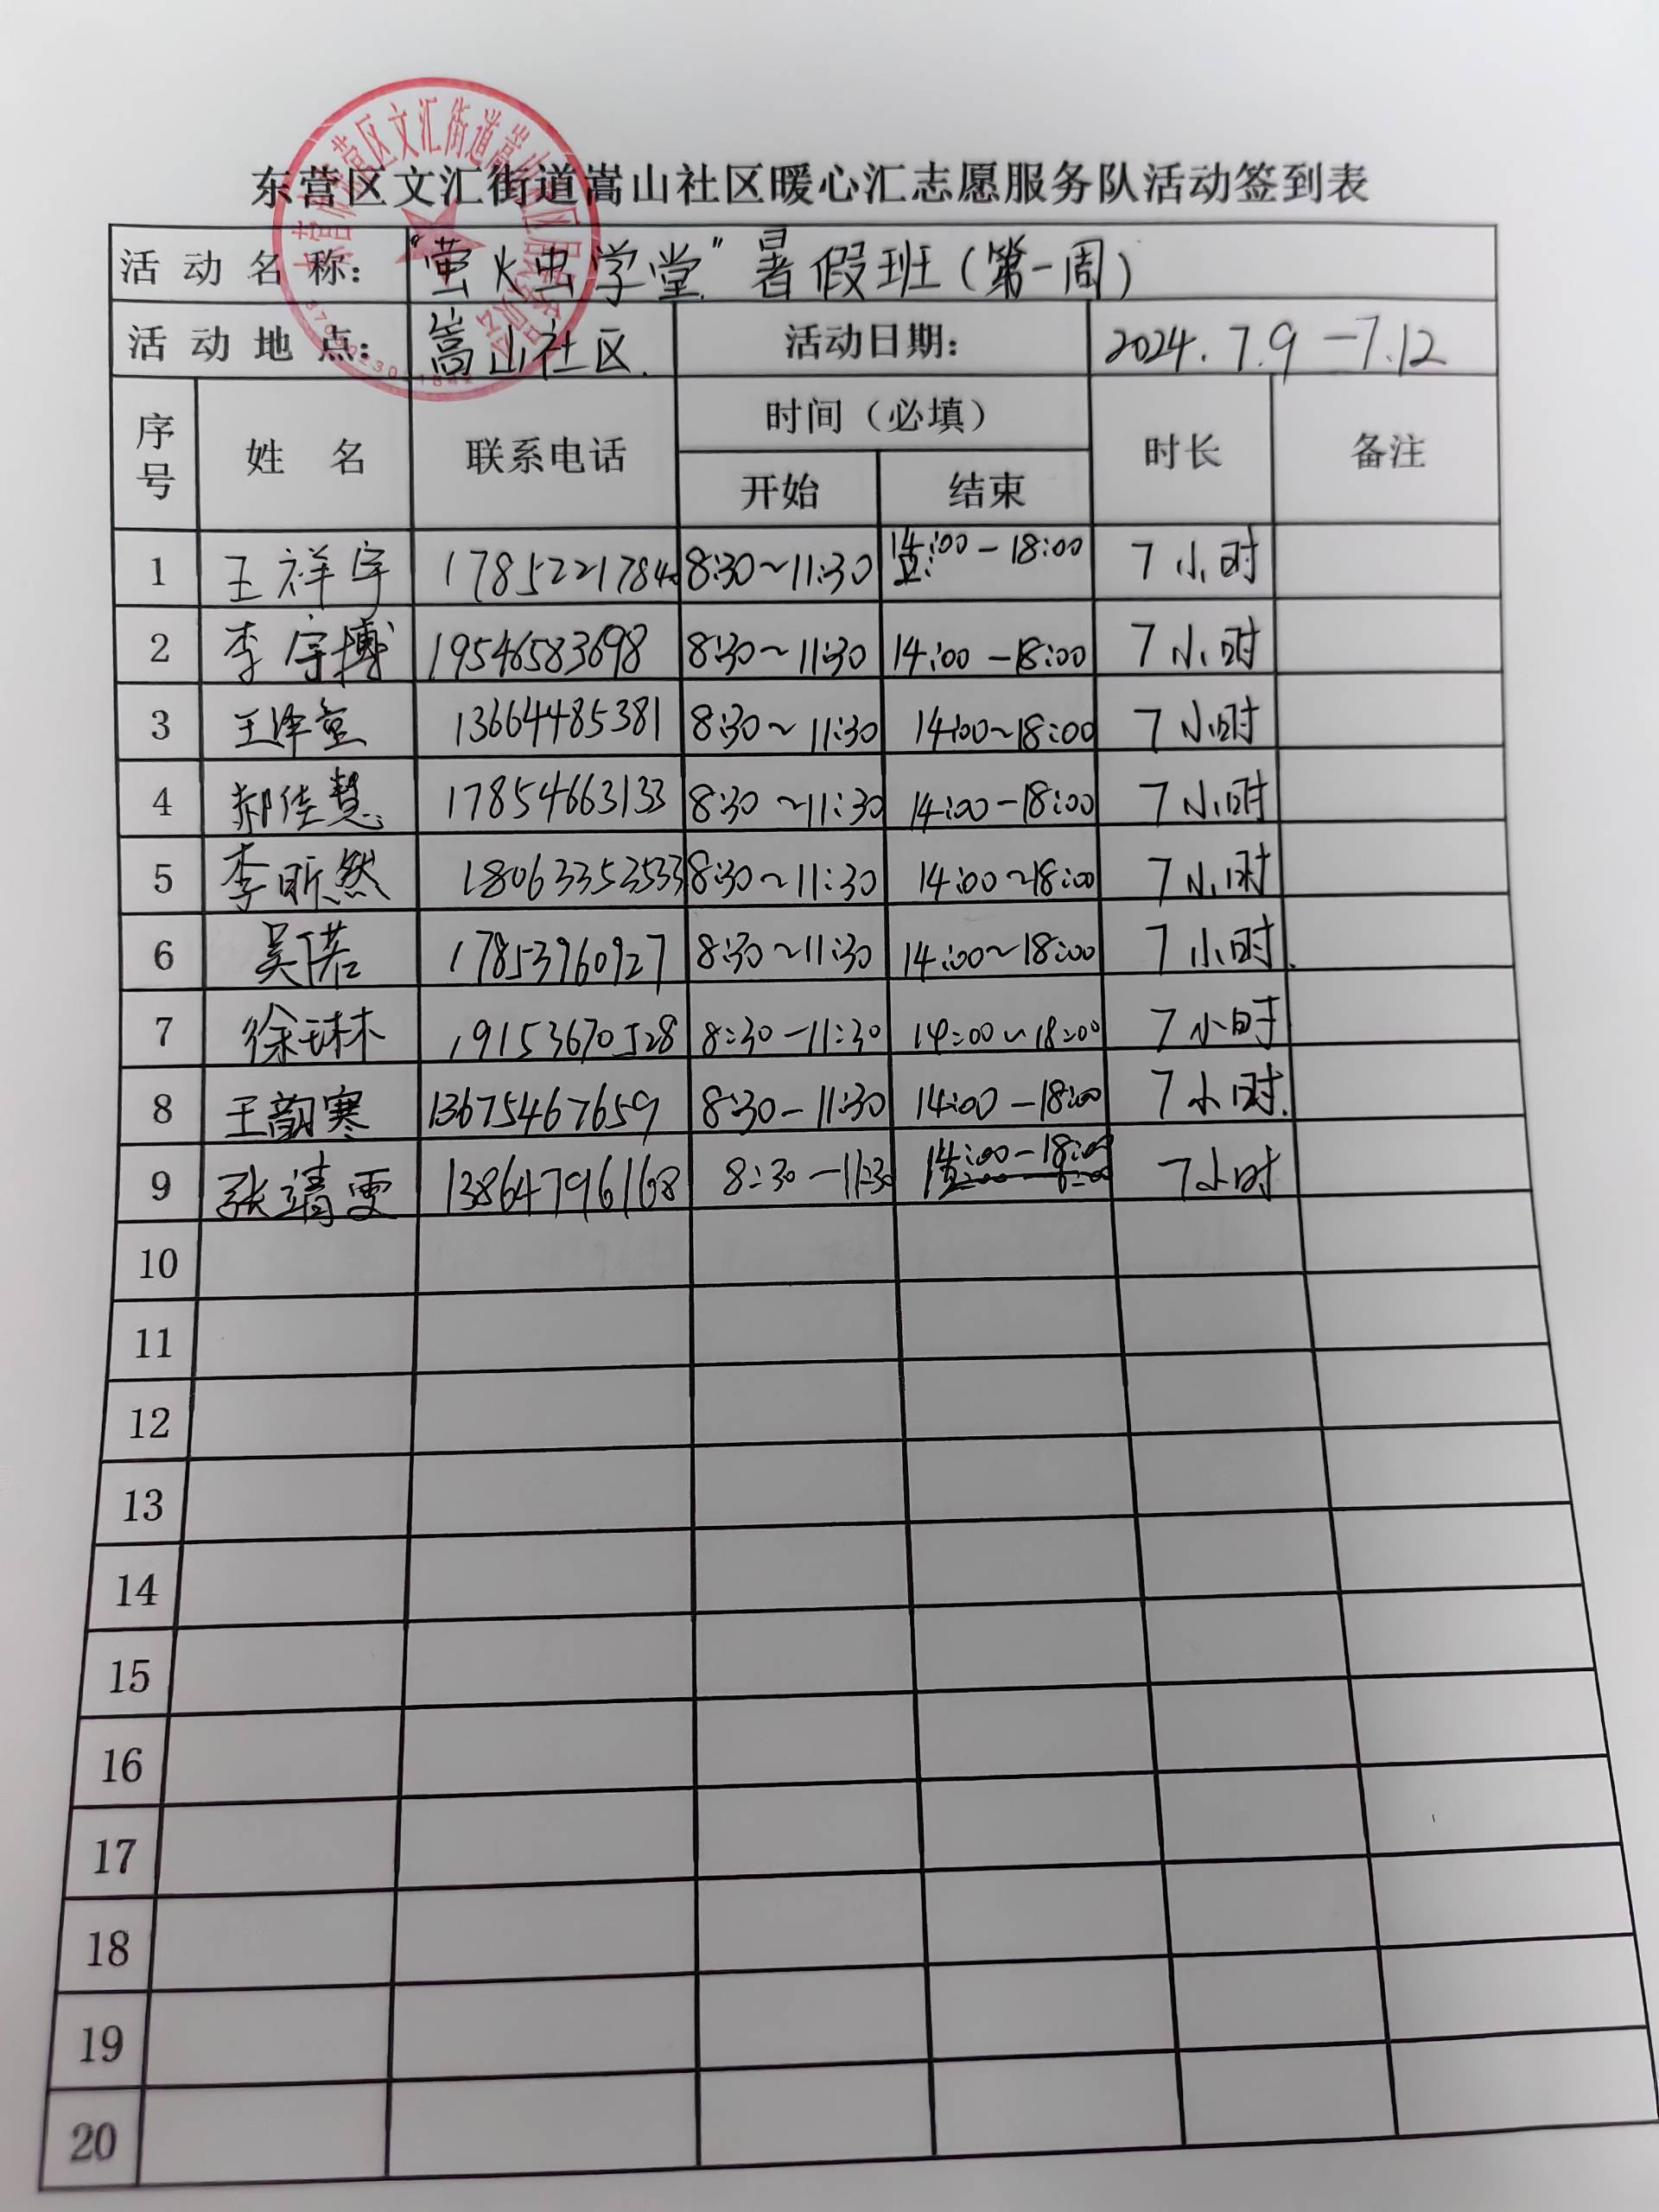 东营区文汇街道嵩山社区暖心汇志愿服务队活动签到表
活动名称： “萤火虫学堂” 暑假班（第一周）
活动地点： 嵩山社区. 活动日期： 2024.7.9 — 7.12
序号 姓名 联系电话 时间（必填） 时长 备注
开始 结束
1 王祥宇 1785221784 8:30～11:30 14:00－18:00 7小时
2 李宇博 19546583698 8:30～11:30 14:00－18:00 7小时
3 王泽童 13664485381 8:30～11:30 14:00～18:00 7小时
4 郝佳慧 17854663133 8:30～11:30 14:00－18:00 7小时
5 李昕然 18063353533 8:30～11:30 14:00～18:00 7小时
6 吴偌 17853960927 8:30～11:30 14:00～18:00 7小时.
7 徐琳 19153670528 8:30－11:30 14:00～18:00 7小时
8 王韵寒 13675467659 8:30－11:30 14:00－18:00 7小时.
9 张靖雯 13864796168 8:30－11:30 14:00－18:00 7小时
10
11
12
13
14
15
16
17
18
19
20